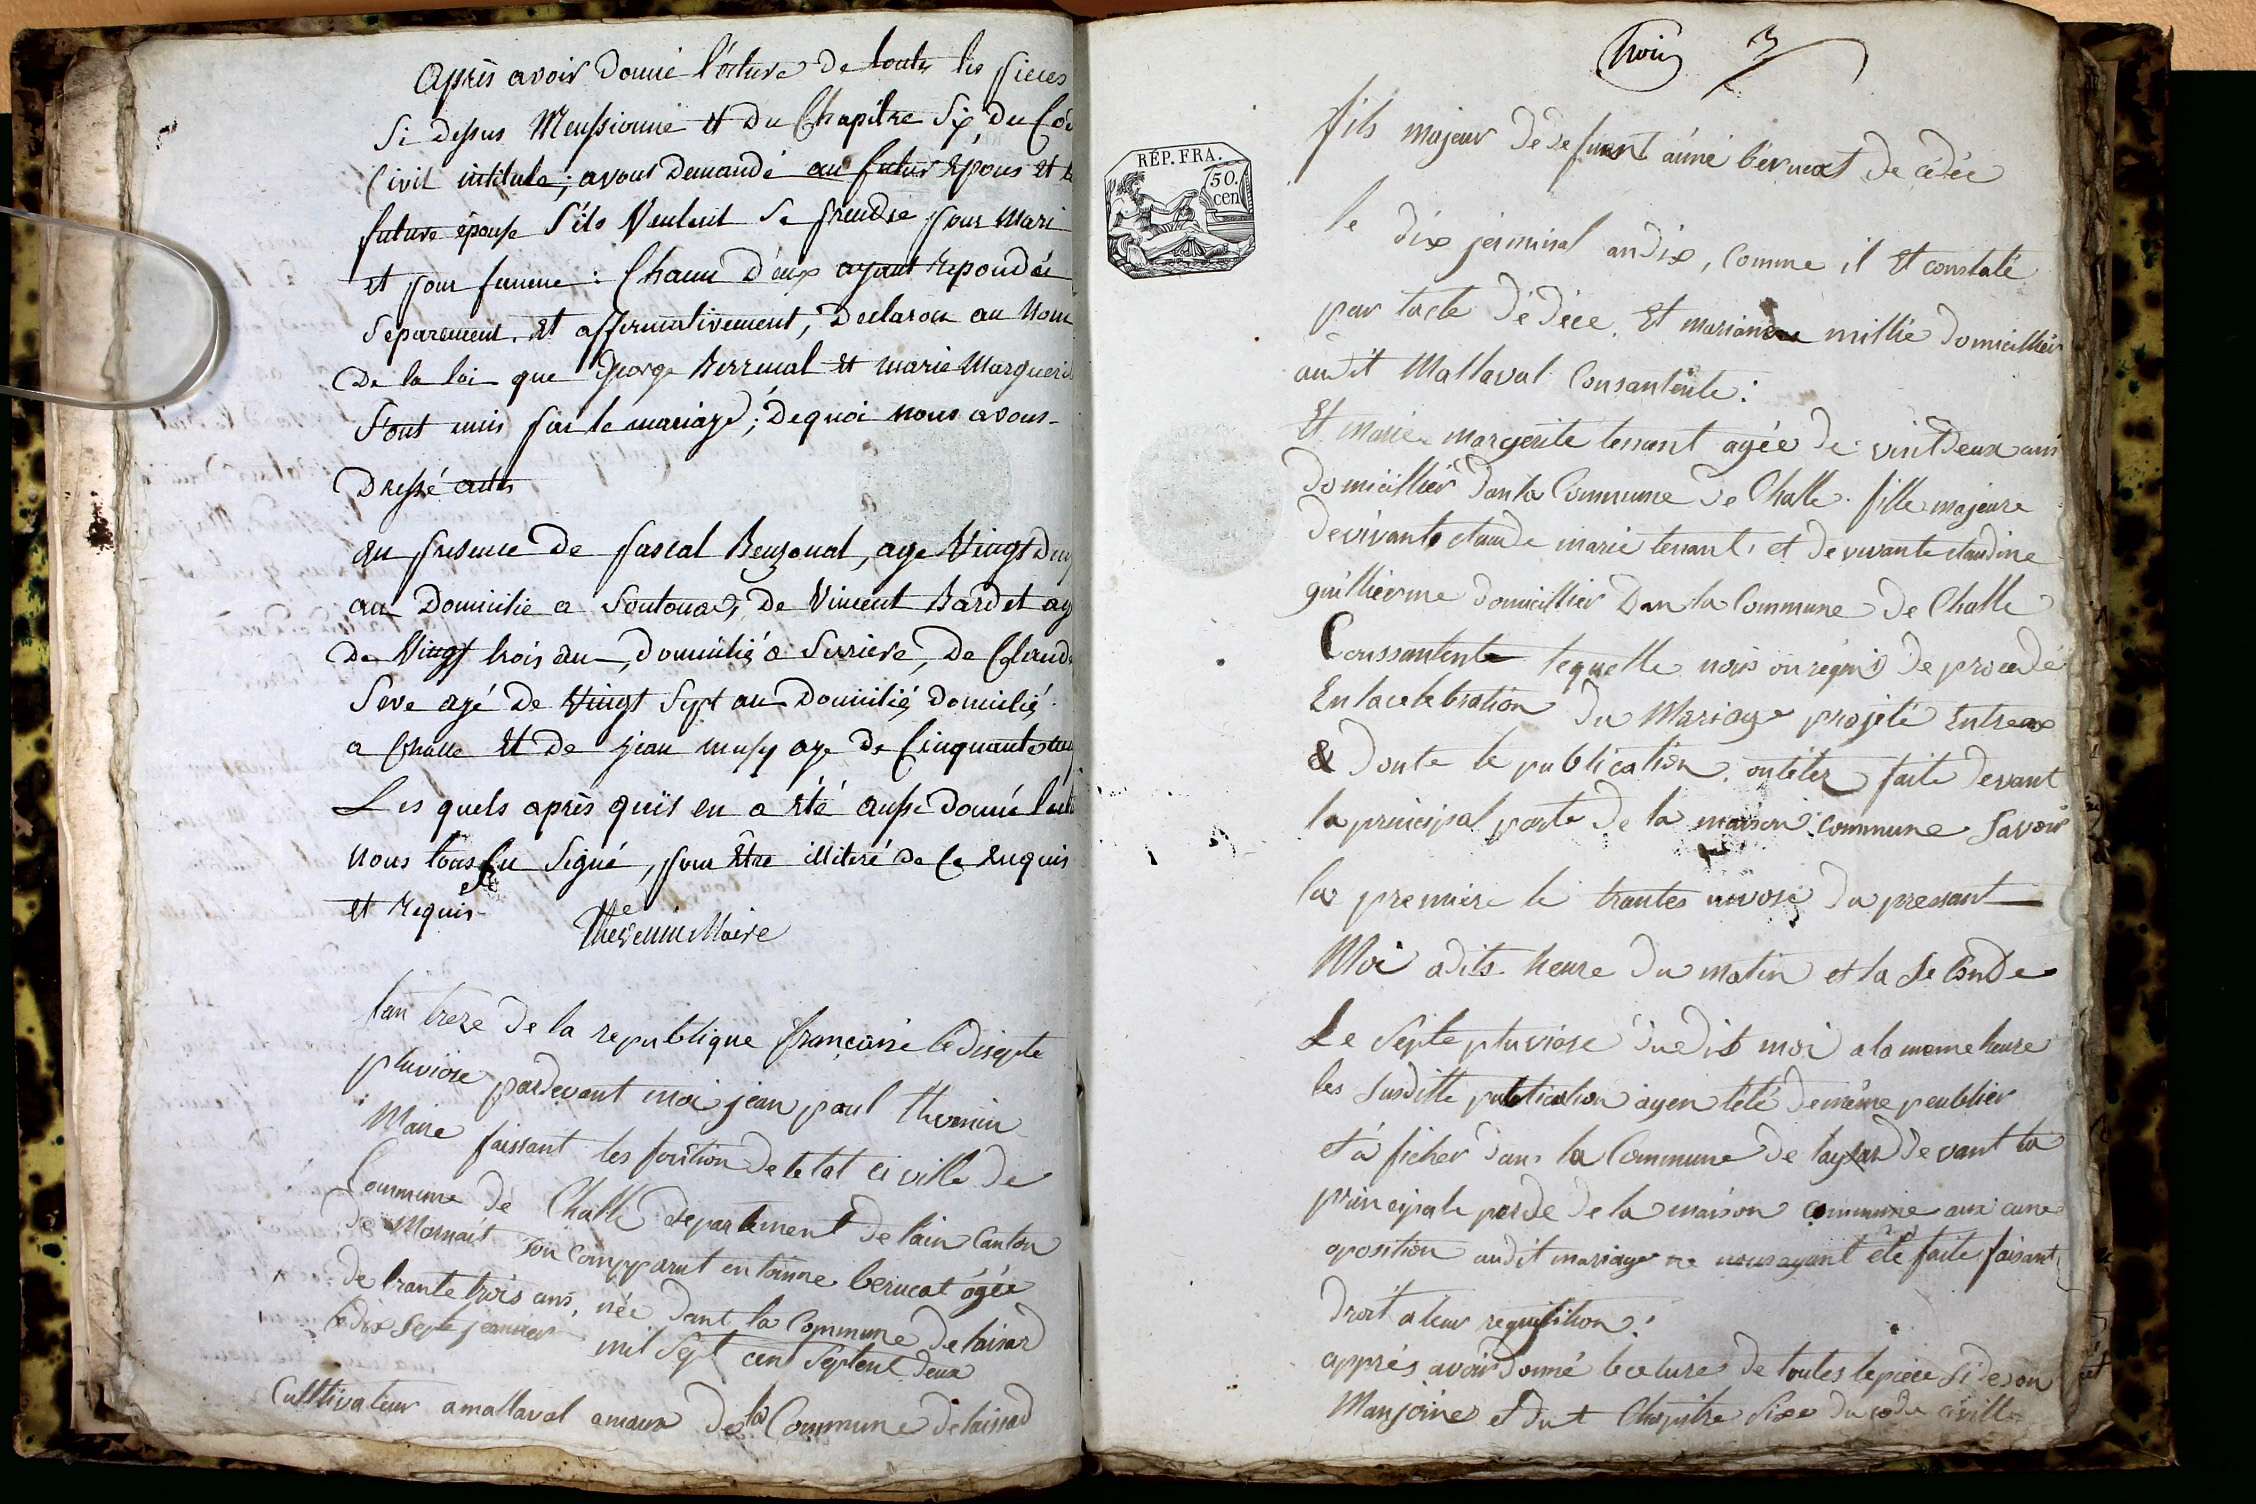 Après avoir donné l'écture de toutes les pieces
Si dessus Menssionné et du Chapitre Six, du Cod
Civil intitulé; avons Demandé au futur Epous et l
future épouse S'ils Veuleut Se prendre pour Mari
et pour femme : Chacun D'eux ayant Repondée
Séparement et affirmativement, Declarons au Nom
De la loi que George Berrenal et marie Marguerit
Sont unis par le mariage; De quoi nous avons
Dressé acte
an presence De pascal Beuzonal, age Vingt Deu
an Domicilié a Soutona, De Vincent Bardet ag
De Vingt trois an, domicilié a Serriere, De Claud
Seve agé De Vingt Sept an Domicilié Domicilié
a Challe Et de jean musy age De Cinquante
Les quels après quis en a été aussi donné l'ectu
Nous tous Signé, pour être illiteré de Ce Enquis
et Requis
Thevenin Maire
lan treze de la republique françaisse le disepte
pluviose pardevant moi jean paul thevenin
Maire faissant les fontion de letat civille de
Commune de Challe departement de lain Canton
de Marnait son comparut entoinne berucat ogée
de trante trois ans, née dant la Commune de laisard
le dix septe jeanvier mil sept cent septent deux
Culltivateur amallaval amaux de la Commune de laissard
Trois 3
RÉP. FRA.
50.
cen
fils majeur de defunt aimé bérucat de cédée
le dix jerminal an dix, Comme il Et constaté
par lacte de dece. Et marianne millié domicillier
audit Mallaval Consantente :
Et marie margerite tenant agée de vint deux ans
domicillier dan la Commune de Challe fille majeure
de vivant claude marie tenant, et de vivante claudine
guillierme domicillier Dan la Commune de Challe
Conssantente lequelle nous on requis de procedé
En la celebration du Mariage projeté Entreax
& donte le publication onteter faite devant
la principal porte de la maison commune savoir
la premiere le trantes nivose du pressant
Moi a dits heure du matin et la Seconde
Le Septe pluviose dudit moi a la meme heure
les susditte publication ayen tété de même peublier
et à ficher dans la Commune de laysar devant la
principale porde de la maison commune aux cune
oposition audit mariage ne nous ayant été faite faisant
droit a leur requisition :
apprés avoir donné lecture de toutes le piece Si desou
Manjoiner et dut Chapitre Sixe du code civille